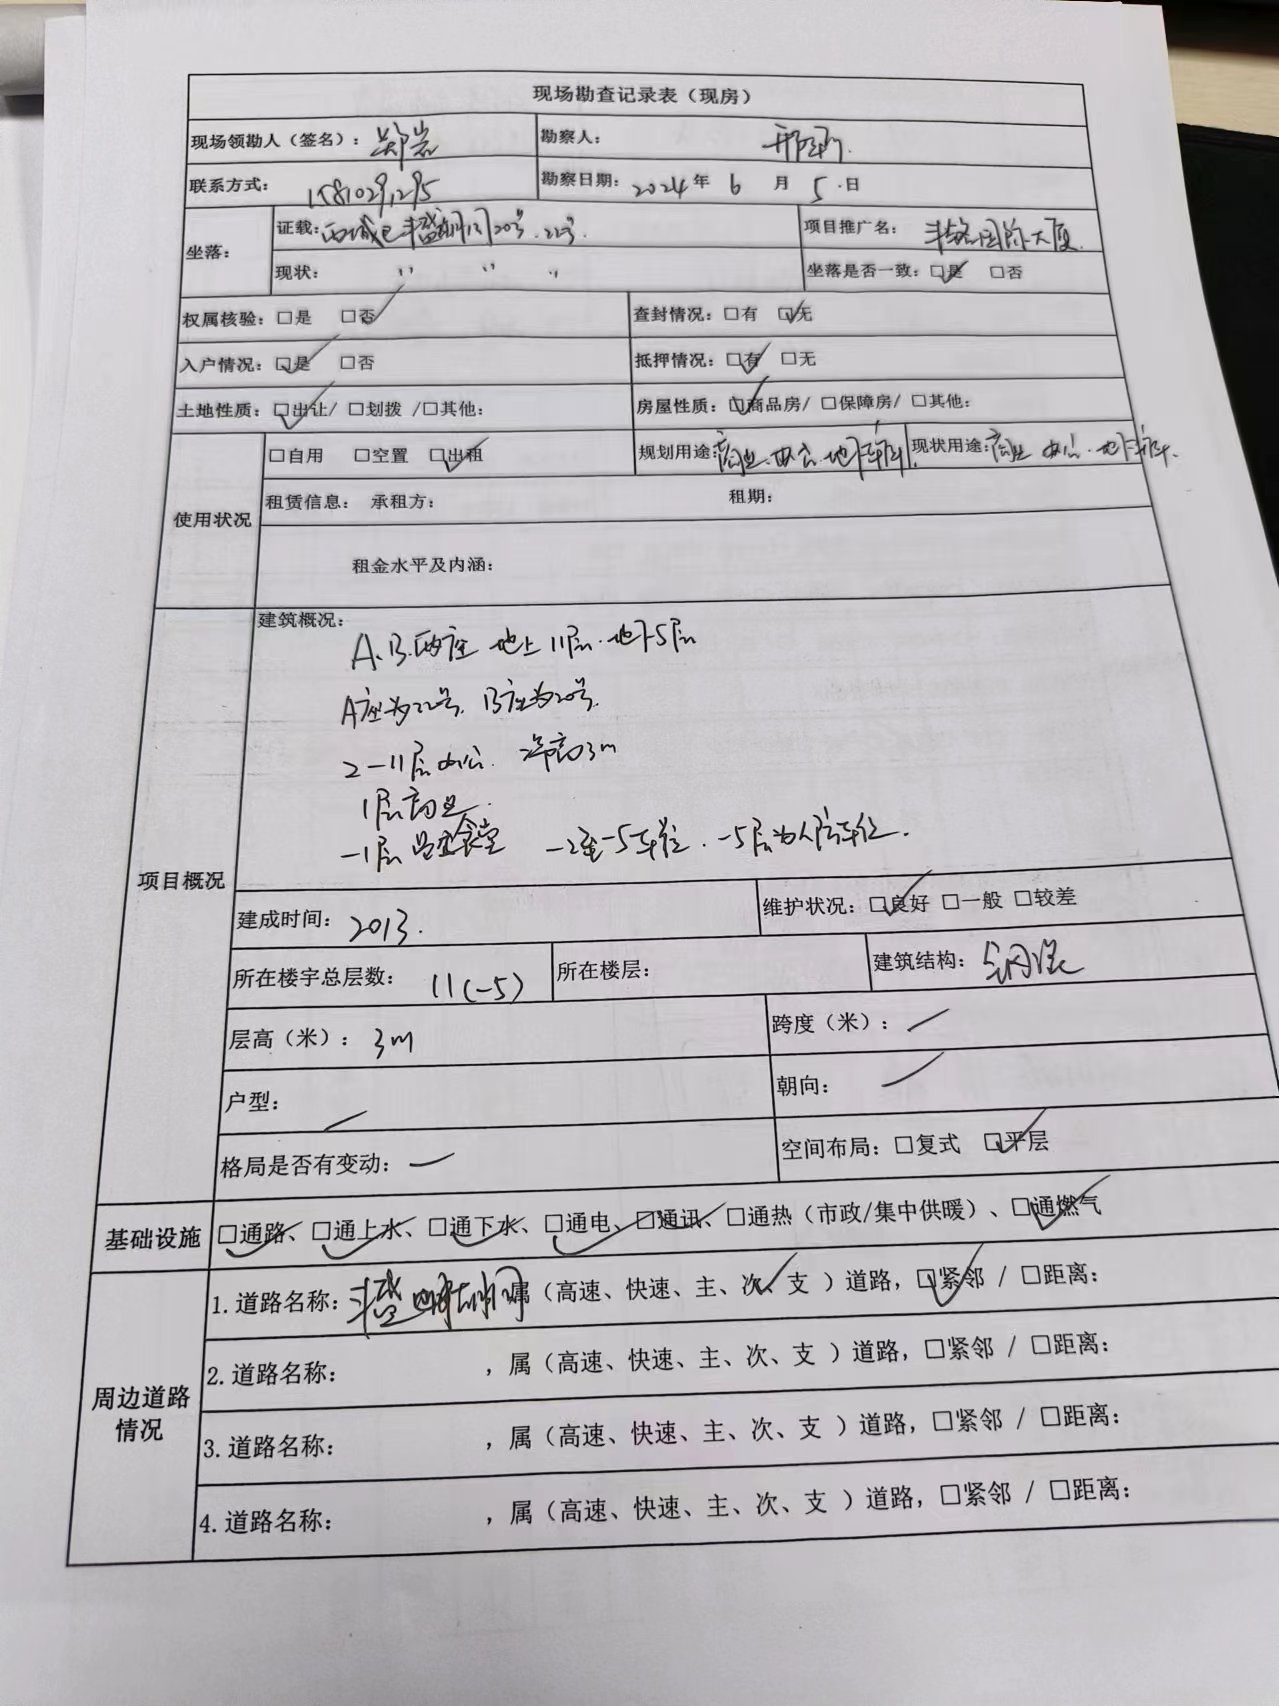 现场勘查记录表（现房）
现场领勘人（签名）：郑岩 勘察人：邢
联系方式：15810291295 勘察日期：2024年6月5日
坐落：证载：西城区丰盛胡同20号、22号. 项目推广名：丰铭国际大厦
现状：〃 〃 〃 坐落是否一致：☑是 □否
权属核验：□是 ☑否 查封情况：□有 ☑无
入户情况：☑是 □否 抵押情况：☑有 □无
土地性质：☑出让/ □划拨 /□其他： 房屋性质：☑商品房/ □保障房/ □其他：
使用状况 □自用 □空置 ☑出租 规划用途：商业、办公、地下车库 现状用途：商业 办公、地下车库.
租赁信息： 承租方： 租期：
租金水平及内涵：
项目概况 建筑概况：
A、B.两座 地上11层.地下5层
A座为22号. B座为20号.
2-11层办公. 净高3m
1层商业.
-1层员工食堂 -2至-5车位. -5层为人防车位.
建成时间：2013. 维护状况：☑良好 □一般 □较差
所在楼宇总层数：11(-5) 所在楼层： 建筑结构：钢混
层高（米）：3m 跨度（米）：/
户型：/ 朝向：/
格局是否有变动：/ 空间布局：□复式 ☑平层
基础设施 ☑通路、☑通上水、☑通下水、☑通电、☑通讯、□通热（市政/集中供暖）、☑通燃气
周边道路情况 1.道路名称：丰盛胡同 属（高速、快速、主、次✓、支 ）道路，☑紧邻 / □距离：
2.道路名称： ，属（高速、快速、主、次、支 ）道路，□紧邻 / □距离：
3.道路名称： ，属（高速、快速、主、次、支 ）道路，□紧邻 / □距离：
4.道路名称： ，属（高速、快速、主、次、支 ）道路，□紧邻 / □距离：